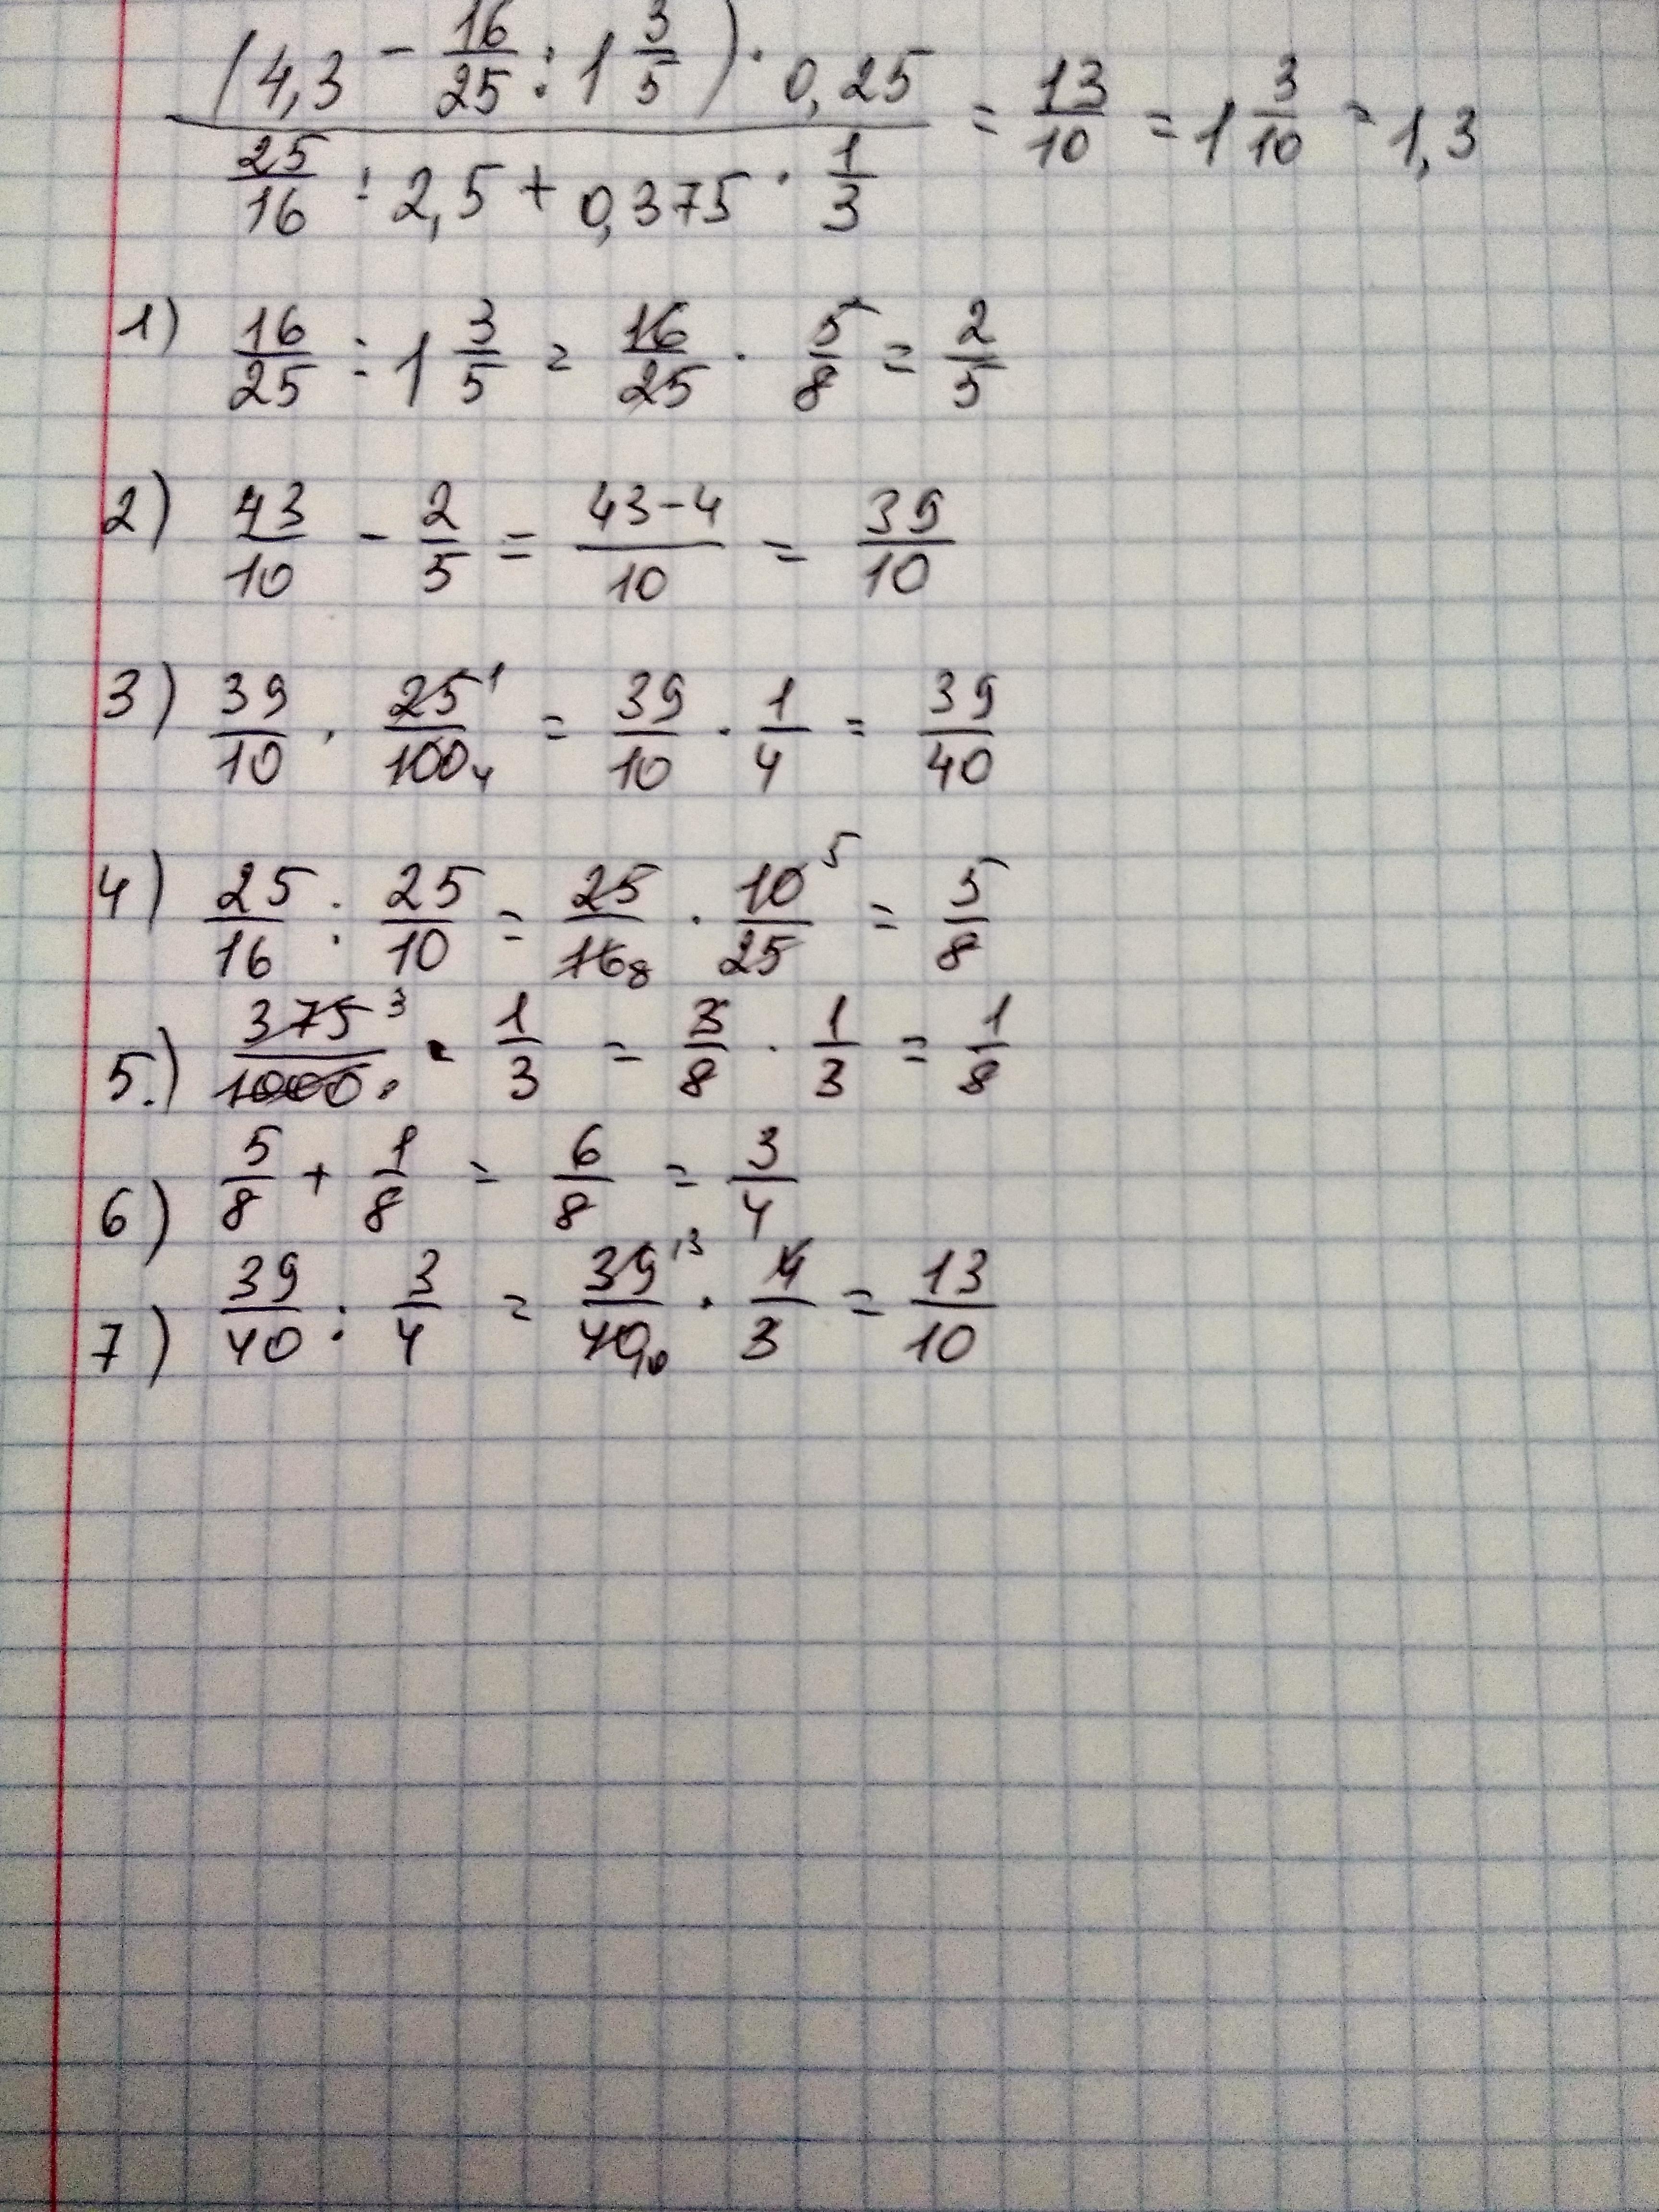 (4,3 - 16/25 : 1 3/5) · 0,25 / 25/16 : 2,5 + 0,375 · 1/3 = 13/10 = 1 3/10 = 1,3
1) 16/25 : 1 3/5 = 16/25 · 5/8 = 2/5
2) 43/10 - 2/5 = 43-4/10 = 39/10
3) 39/10 · 25¹/100₄ = 39/10 · 1/4 = 39/40
4) 25/16 : 25/10 = 25/16₈ · 10⁵/25 = 5/8
5.) 375³/1000₈ · 1/3 = 3/8 · 1/3 = 1/8
6) 5/8 + 1/8 = 6/8 = 3/4
7) 39/40 : 3/4 = 39¹³/40₁₀ · 4/3 = 13/10